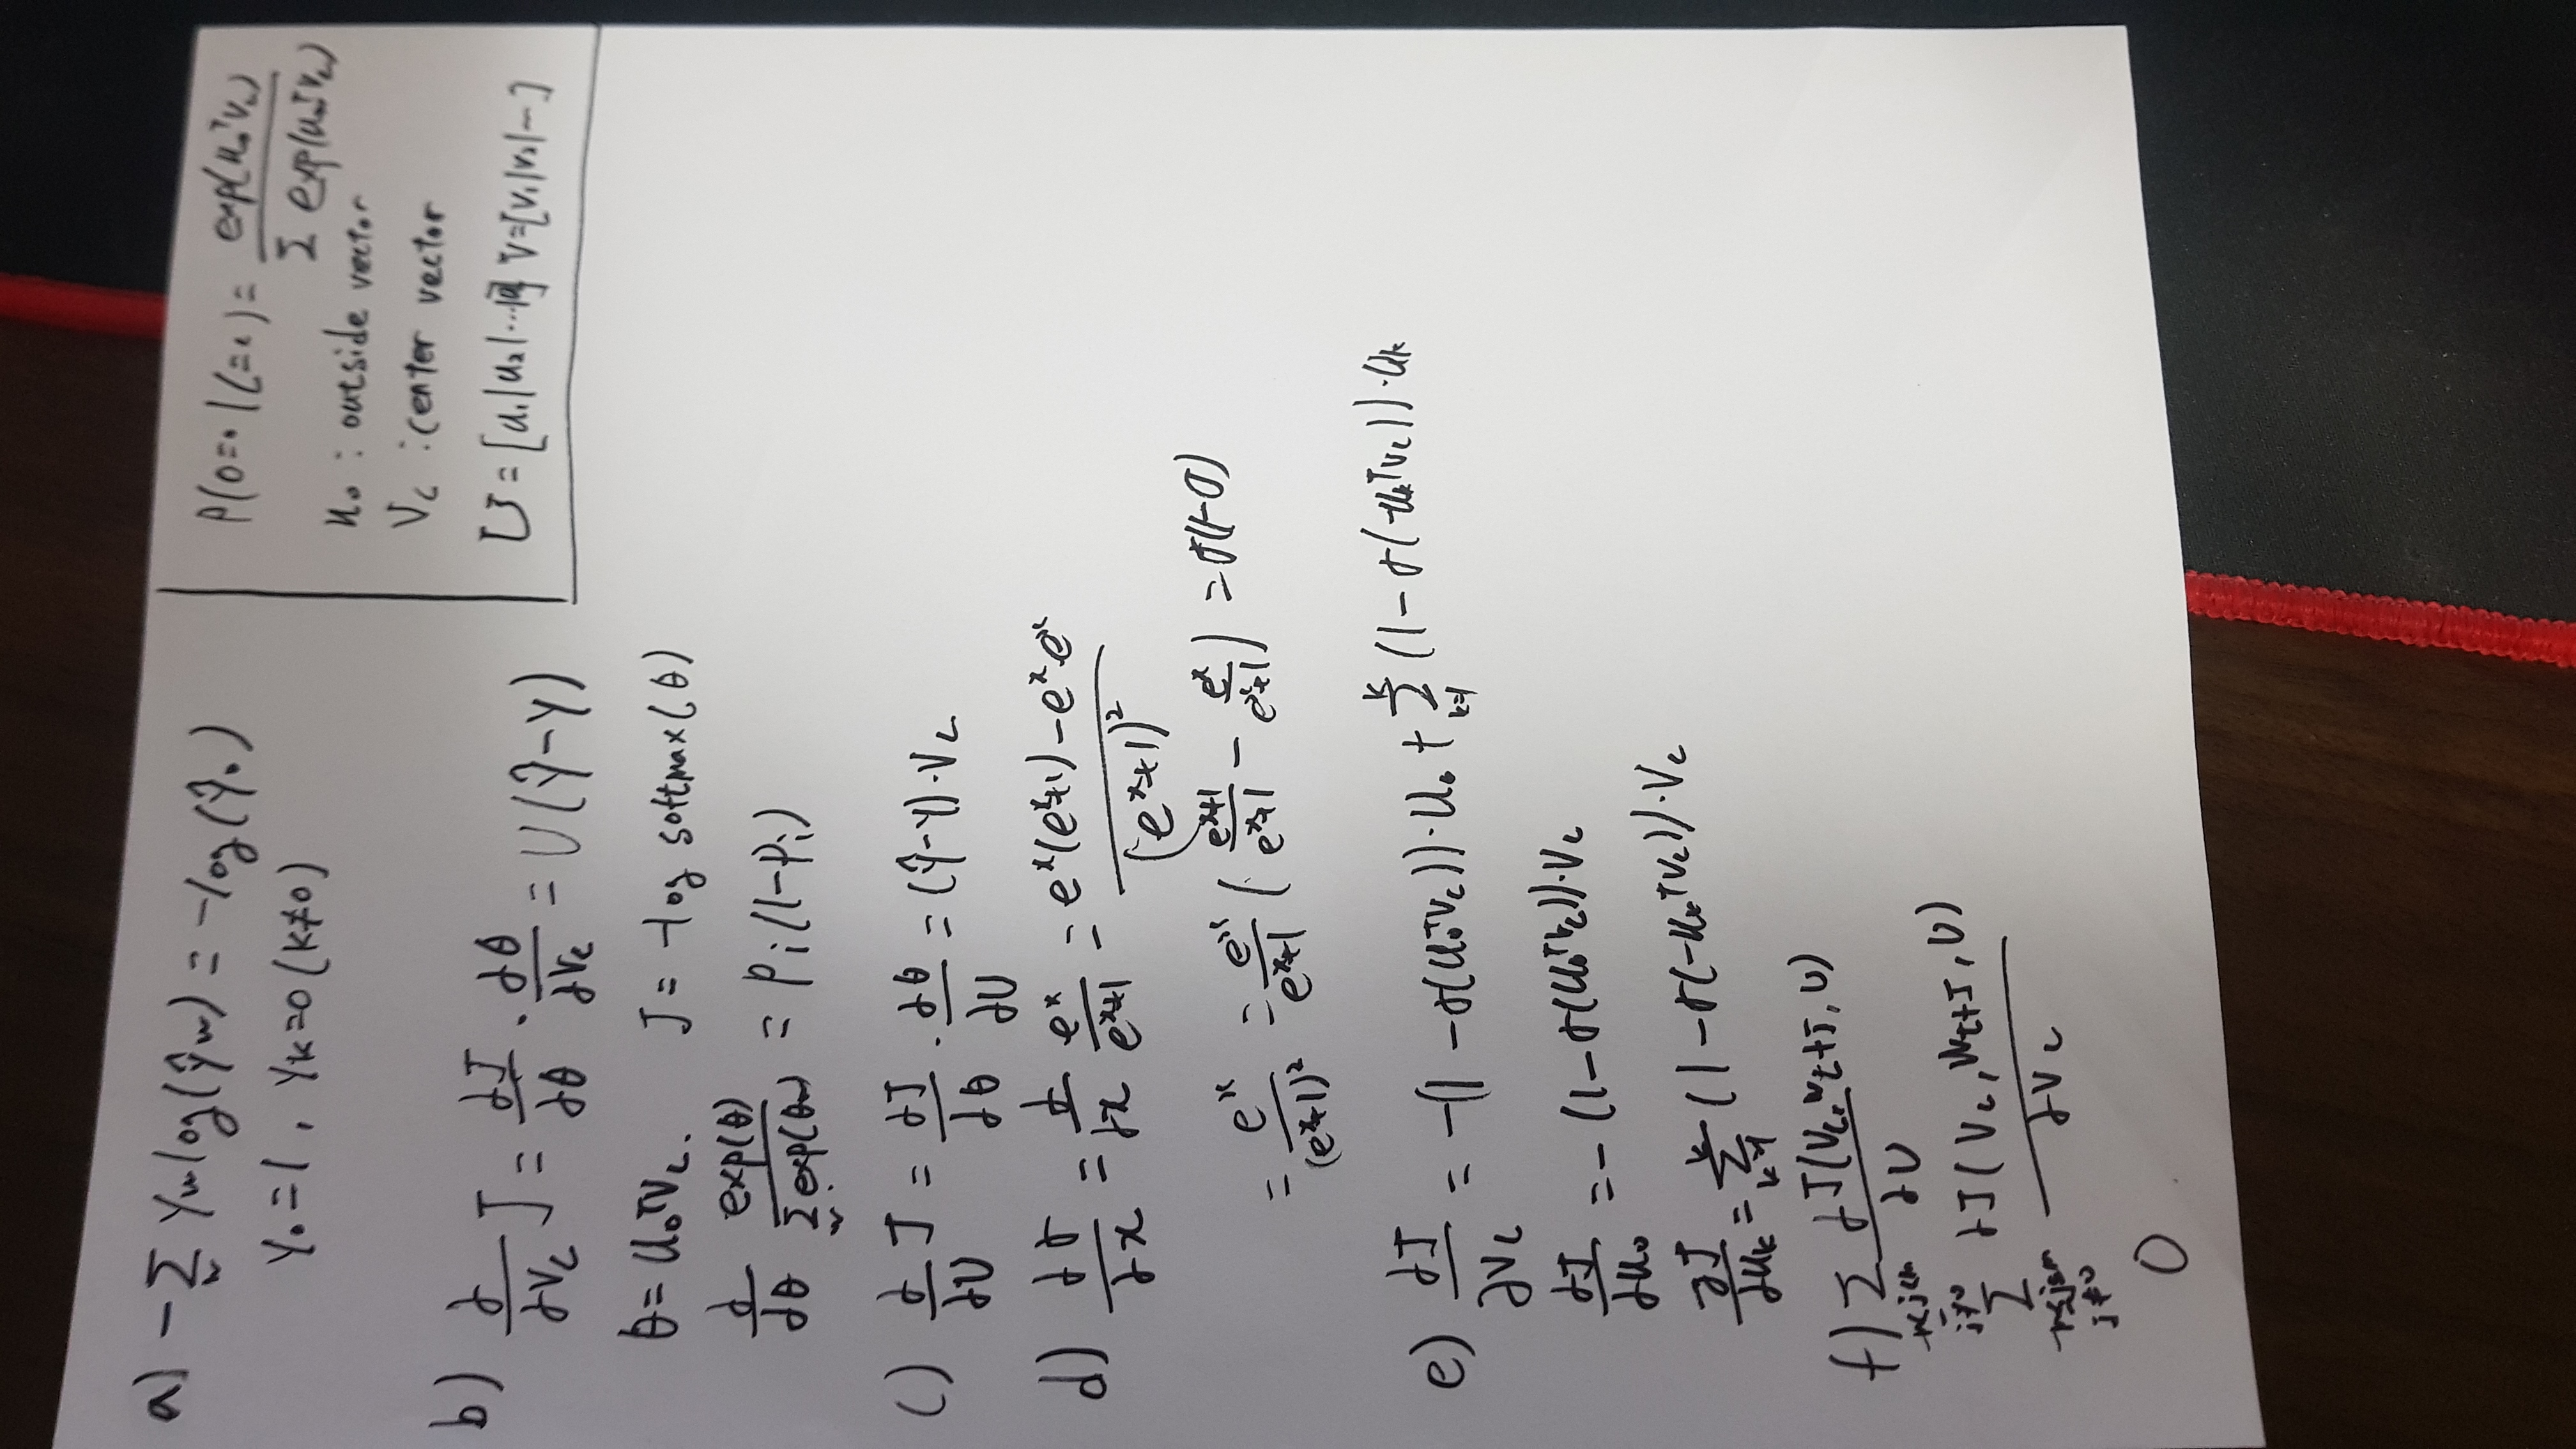 a) -Σ_w Y_w log(ŷ_w) = -log(ŷ_o)
Y_o = 1, Y_K = 0 (K≠0)
P(O=o|C=c) = exp(u_o^T v_c) / Σ exp(u_w^T v_c)
u_o : outside vector
V_c : center vector
U = [u_1|u_2|...] V = [v_1|v_2|...]
b) ∂/∂V_c J = ∂J/∂θ · ∂θ/∂V_c = U(ŷ-Y)
θ = u_o^T V_c. J = -log softmax(θ)
∂/∂θ exp(θ)/Σ_w exp(θ_w) = P_i(1-P_i)
c) ∂/∂U J = ∂J/∂θ · ∂θ/∂U = (ŷ-Y)·V_c
d) ∂σ/∂x = ∂/∂x e^x/(e^x+1) = (e^x(e^x+1) - e^x e^x)/(e^x+1)^2
= e^x/(e^x+1)^2 = e^x/(e^x+1) ((e^x+1)/(e^x+1) - e^x/(e^x+1)) = σ(1-σ)
e) ∂J/∂V_c = -(1-σ(u_o^T v_c))·u_o + Σ_{k=1}^{K} (1-σ(-u_k^T v_c))·u_k
∂J/∂u_o = -(1-σ(u_o^T v_c))·V_c
∂J/∂u_k = Σ_{k=1}^{K} (1-σ(-u_k^T v_c))·V_c
f) Σ_{-m≤j≤m, j≠0} ∂J(V_c, w_{t+j}, U)/∂U
Σ_{-m≤j≤m, j≠0} ∂J(V_c, W_{t+j}, U)/∂V_c
0